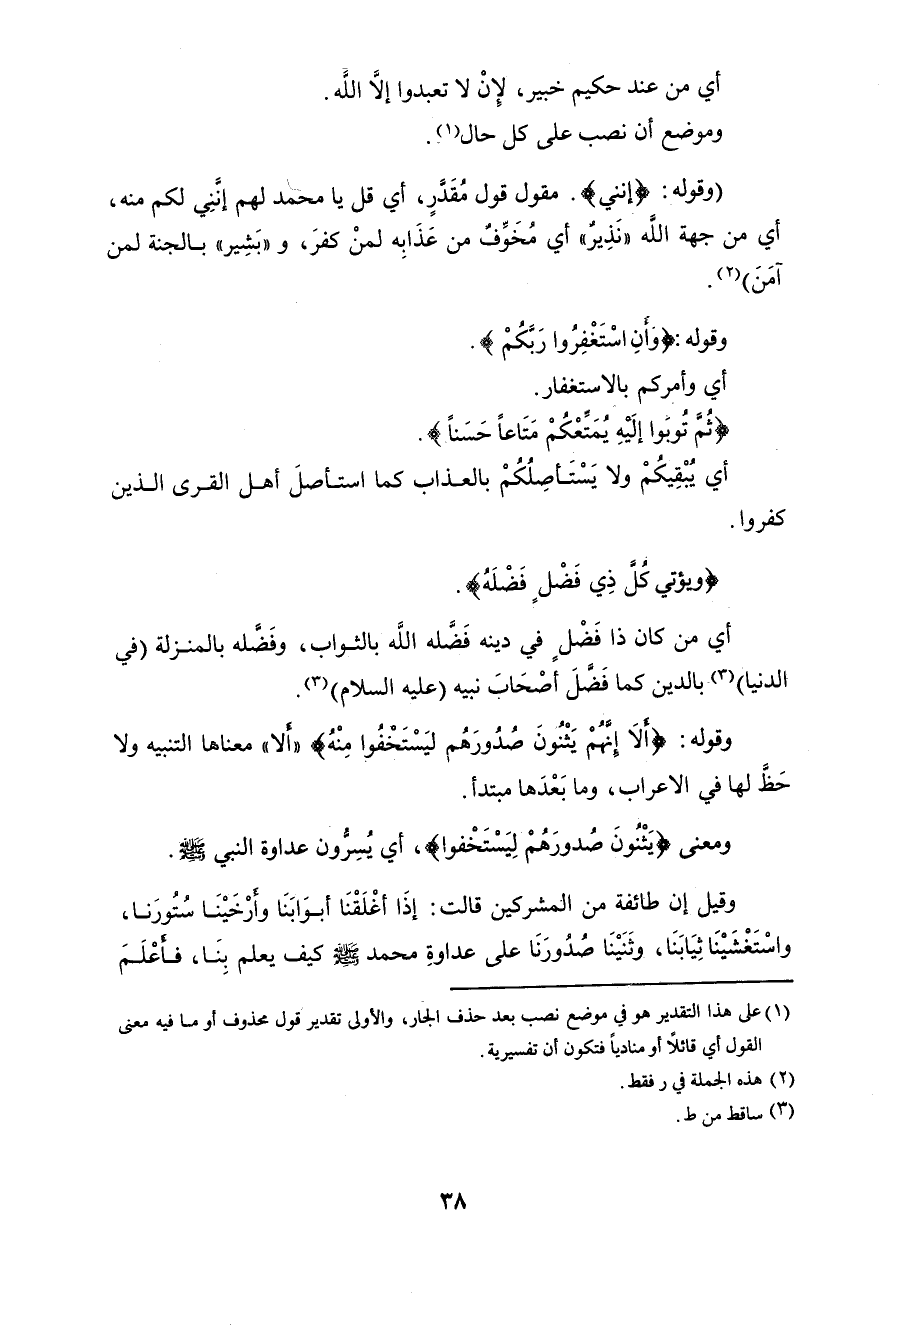 أي من عند حكيم خبير، لِإنْ لا تعبدوا إلَّا اللَّه.
وموضع أن نصب على كل حال(١).
(وقوله: ﴿إنني﴾. مقول قول مُقَدَّرٍ، أي قل يا محمد لهم إنَّنِي لكم منه،
أي من جهة اللَّه «نَذِيرٌ» أي مُخَوِّفٌ من عَذَابِه لمنْ كفرَ، و «بَشِير» بـالجنة لمن
آمَنَ)(٢).
وقوله :﴿وَأَنِ اسْتَغْفِرُوا رَبَّكُمْ ﴾.
أي وأمركم بالاستغفار.
﴿ثُمَّ تُوبُوا إلَيْهِ يُمَتِّعْكُمْ مَتَاعاً حَسَناً ﴾.
أي يُبْقِيكُمْ ولا يَسْتَـأصِلُكُمْ بالعـذاب كما استـأصلَ أهـل القـرى الـذين
كفروا.
﴿ويؤتي كُلَّ ذِي فَضْلٍ فَضْلَهُ﴾.
أي من كان ذا فَضْلٍ في دينه فَضَّله اللَّه بالثـواب، وفَضَّله بالمنـزلة (في
الدنيا)(٣) بالدين كما فَضَّلَ أصْحَابَ نبيه (عليه السلام)(٣).
وقوله: ﴿أَلَا إِنَّهُمْ يَثْنُونَ صُدُورَهُم لِيَسْتَخْفُوا مِنْهُ﴾ «أَلا» معناها التنبيه ولا
حَظَّ لها في الاعراب، وما بَعْدَها مبتدأ.
ومعنى ﴿يَثْنُونَ صُدورَهُمْ لِيَسْتَخْفوا﴾، أي يُسِرُّون عداوة النبي ﷺ.
وقيل إن طائفة من المشركين قالت: إذَا أغْلَقْنَا أبـوَابَنَا وأَرْخَيْنَـا سُتُورَنـا،
واسْتَغْشَيْنَا ثِيَابَنَا، وثَنَيْنَا صُدُورَنَا على عداوةِ محمد ﷺ كيف يعلم بِنَـا، فـأَعْلَـمَ
(١) على هذا التقدير هو في موضع نصب بعد حذف الجار، والأولى تقدير قول محذوف أو مـا فيه معنى
القول أي قائلاً أو منادياً فتكون أن تفسيرية.
(٢) هذه الجملة في ر فقط.
(٣) ساقط من ط.
٣٨